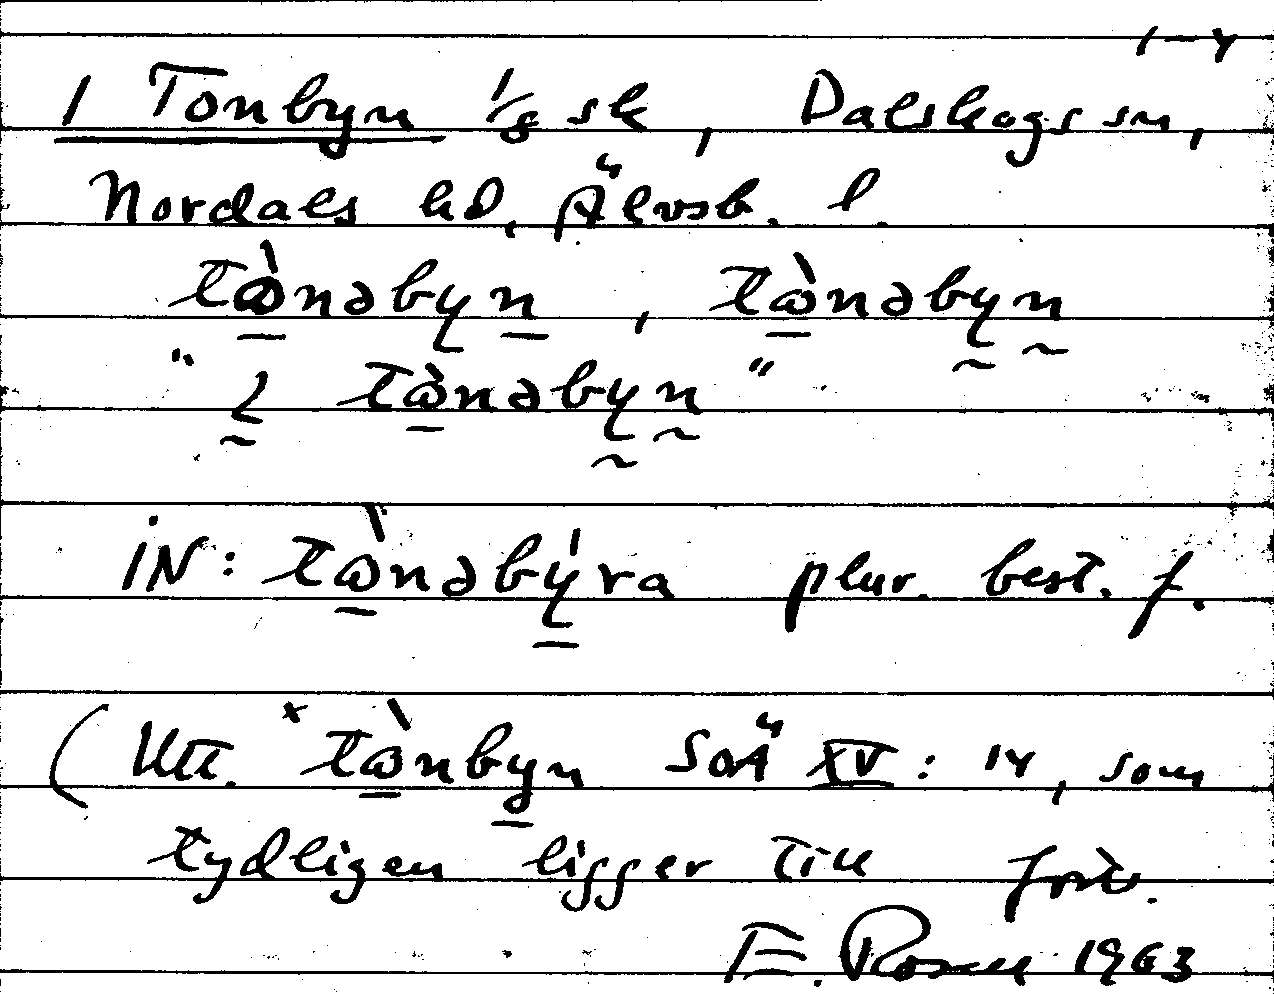 1-4
1 Tonbyn 1/8 sk, Dalskogs sn,
Nordals hd, Älvsb. l.
tɷ̀nəbyn, tɷ̀nəbyn
"2 tɷ̀nəbyn"
iN: tɷ̀nəbýra plur. best. f.
(Utt. ˣtɷ̀nbyn SOÄ XV: 14, som
tydligen ligger till
E. Rosell 1963